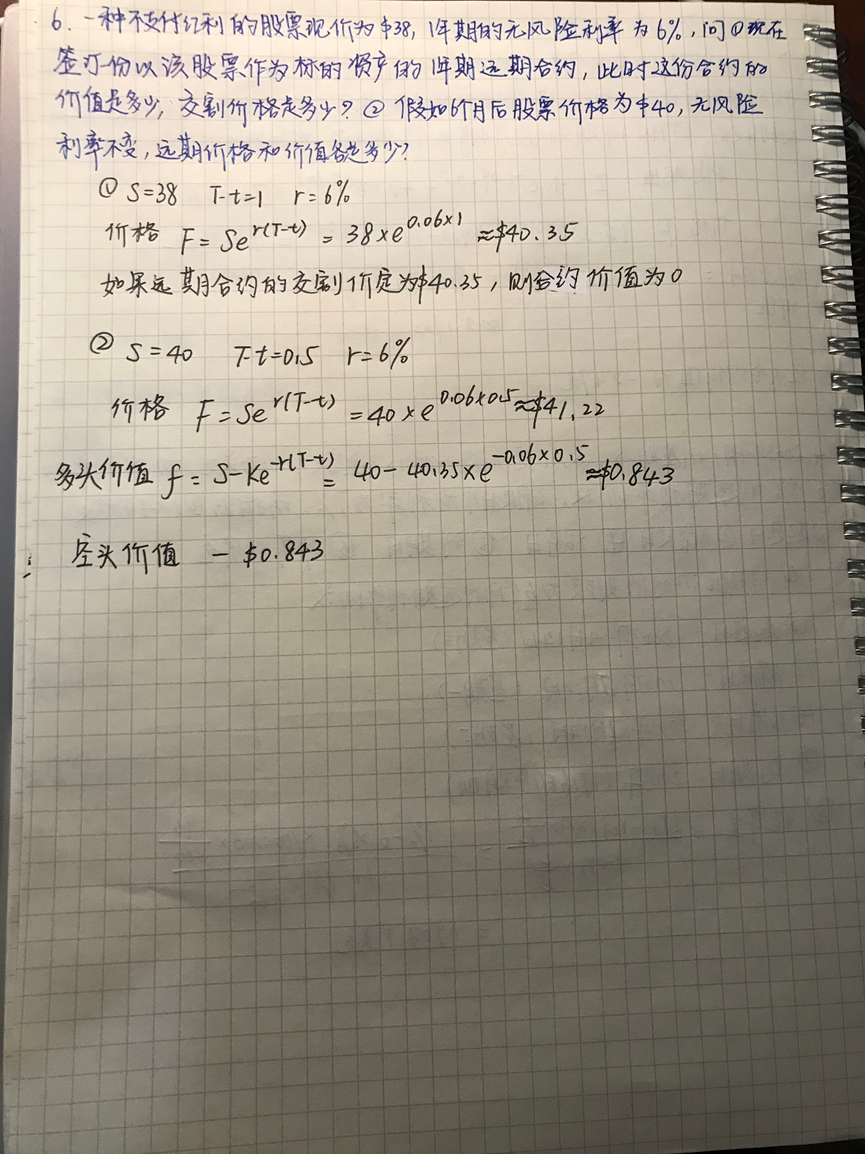 6. 一种不支付红利的股票现价为$38, 1年期的无风险利率为6%, 问①现在
签订份以该股票作为标的资产的1年期远期合约, 此时这份合约的
价值是多少, 交割价格是多少? ② 假如6个月后股票价格为$40, 无风险
利率不变, 远期价格和价值各是多少?
① S=38 T-t=1 r=6%
价格 F=Se^{r(T-t)} = 38×e^{0.06×1} ≈$40.35
如果远期合约的交割价定为$40.35, 则合约价值为0
② S=40 T-t=0.5 r=6%
价格 F=Se^{r(T-t)} =40×e^{0.06×0.5}≈$41.22
多头价值 f= S-Ke^{-r(T-t)} = 40-40.35×e^{-0.06×0.5}≈$0.843
空头价值 -$0.843